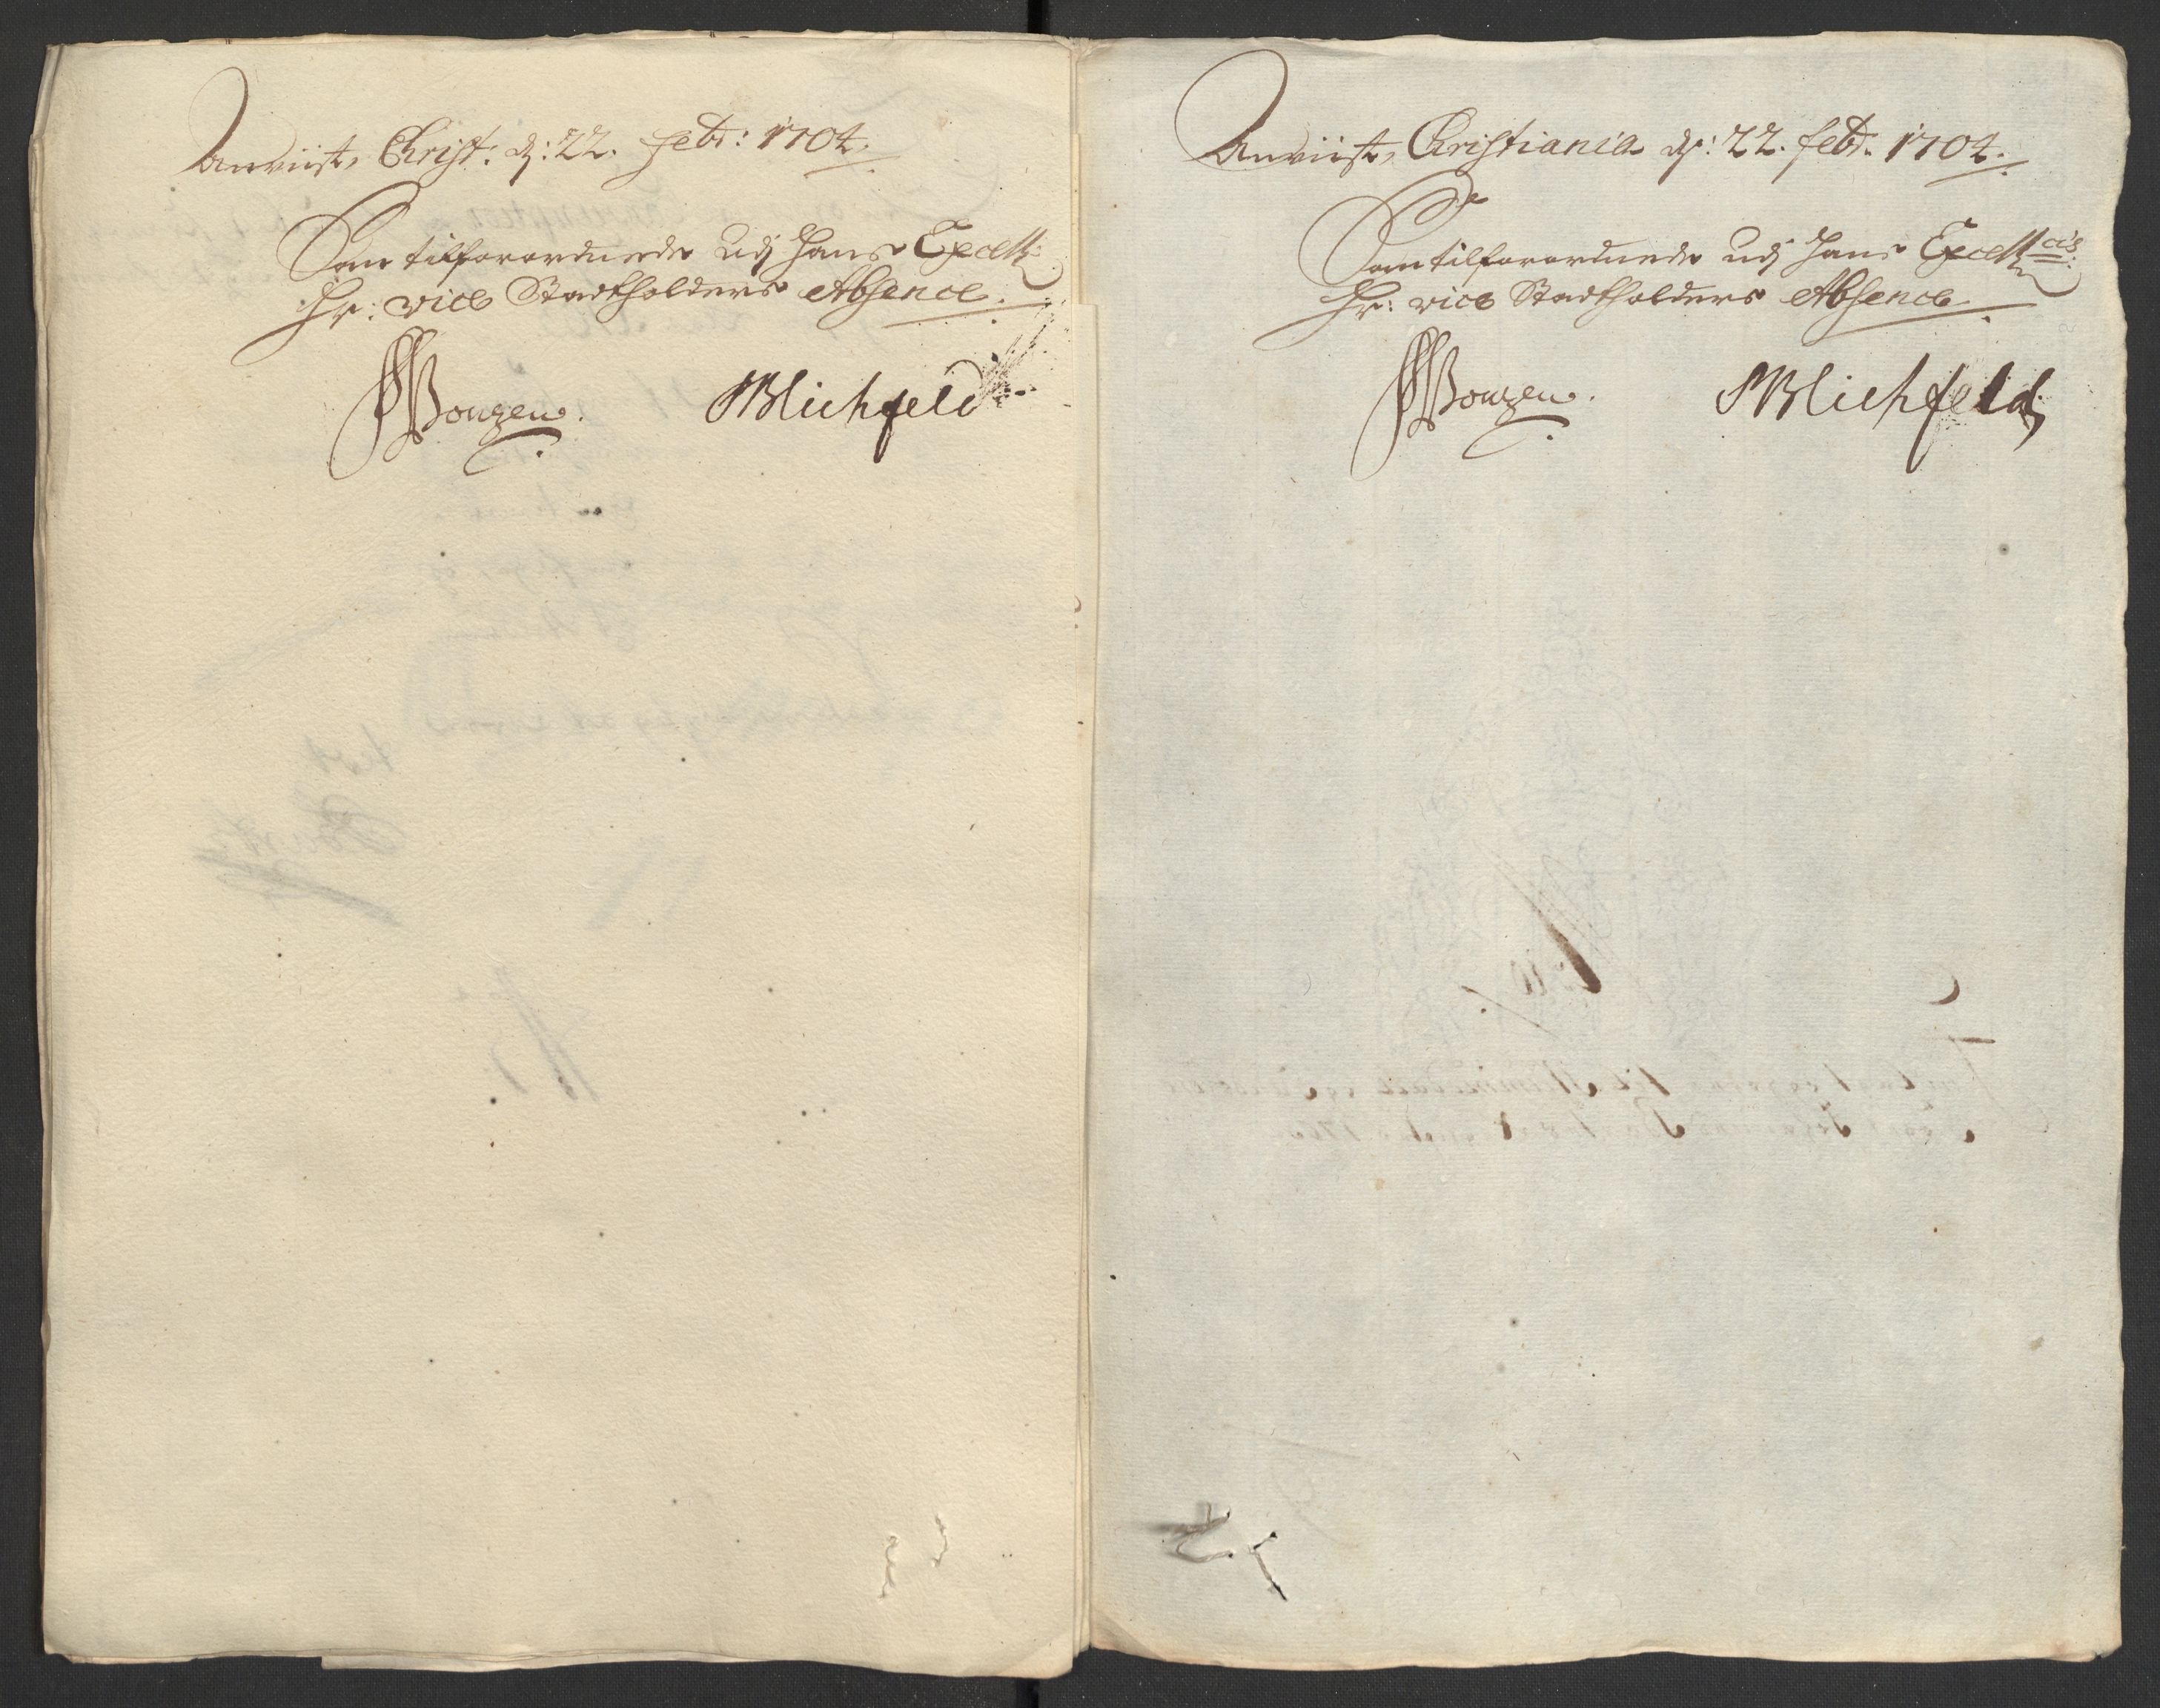 Anviist, Christ: d: 22. Febr: 1704.
Som tilforordnede udj Hans Excell:
Hr: vice Stadtholders Absence.
Bonzen. Blichfeld
Anviist, Christiania d: 22. Febr. 1704.
Som tilforordnede udj Hans Excell:cis
Hr: vice Stadtholders Absence
Bonzen. Blichfeld